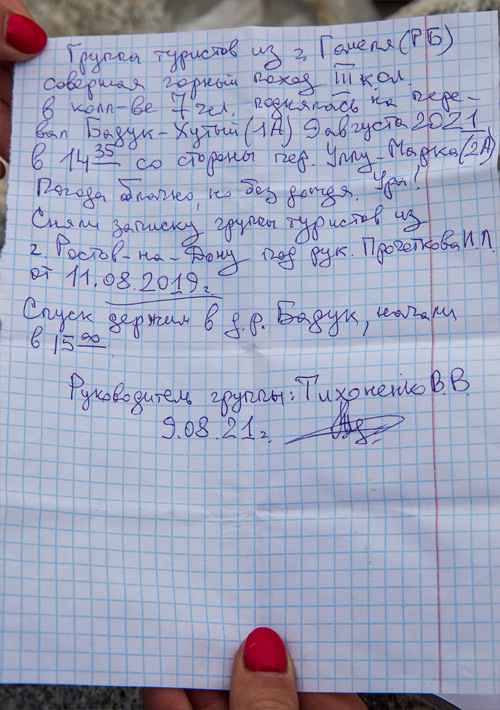 Группа туристов из г. Гомеля (РБ)
совершая горный поход III к.сл.
в колл-ве 7 чел. поднялась на пере-
вал Бадук-Хутый (1А) 9 августа 2021
в 14 35 со стороны пер. Уллу-Марка (2А)
Погода облачно, но без дождя. Ура!
Сняли записку группы туристов из
г. Ростов-на-Дону под рук. И.П.
от 11.08.2019г.
Спуск держим в д.р. Бадук, начали
в 15 00
Руководитель группы: Тихоненко В.В.
9.08.21г.